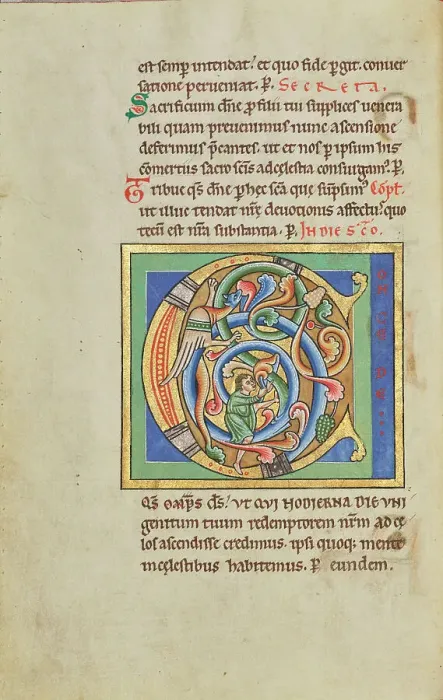 est semp intendat! et quo fide pgit. conuer
satione perueniat. P. Secreta.
Sacrificium dn̄e p filii tui supplices uenera
bili quam preuenimus nunc ascensione
deferimus p̄cantes. ut et nos p ipsum his
comertiis sacro sc̄is adcęlestia consurgam᾽. P.
Tribue qs dn̄e p hec sc̄a que sūpsim᾽ Copł.
ut illuc tendat nr̄ę deuotionis affectu᾽ quo
tecū est nr̄a substantia. P. IN DIE SCŌ.
C
QS OMP̄S D̄S! UT QUI HODIERNA DIE UNI
genitum tuum redemptorem nrm̄ ad cę
los ascendisse credimus. ipsi quoq; mente
in cęlestibus habitemus. P eundem.